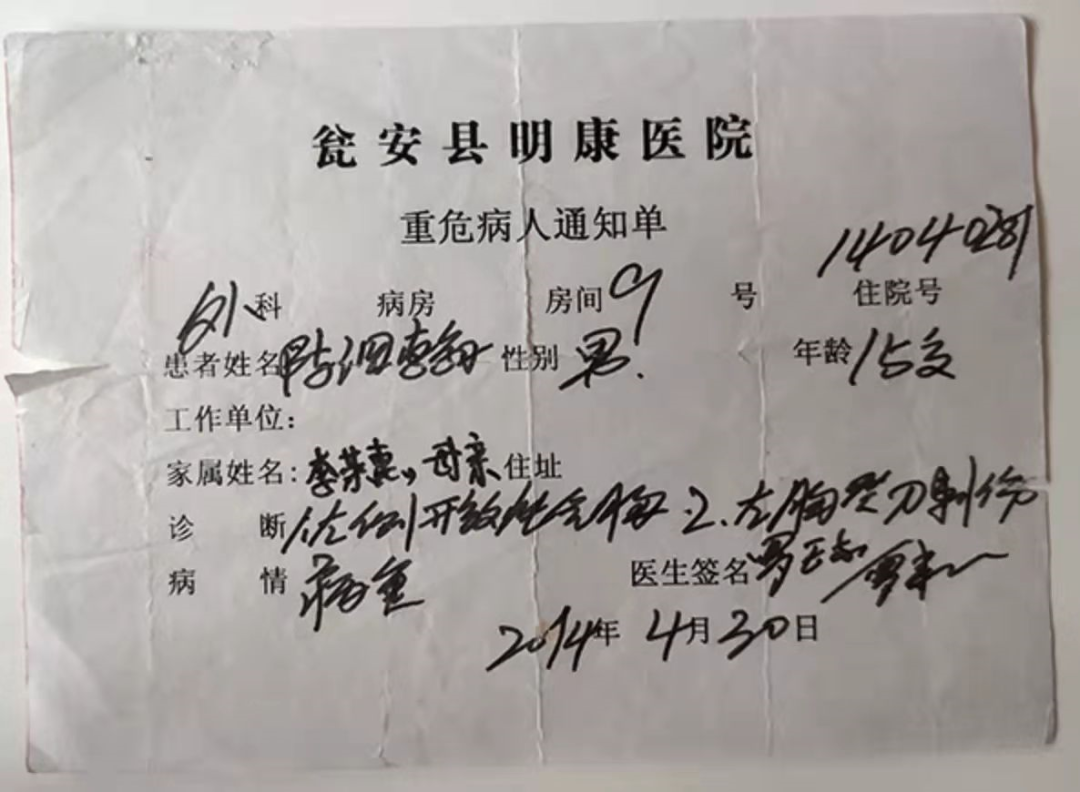 瓮安县明康医院
重危病人通知单
14040281
外科 病房 房间 9 号 住院号
患者姓名 陈泗翰 性别 男. 年龄 15岁
工作单位:
家属姓名: 李荣惠, 母亲 住址
诊 断 左侧开放性气胸. 2. 左胸壁刀刺伤
病 情 病重 医生签名 罗
2014年 4月30日